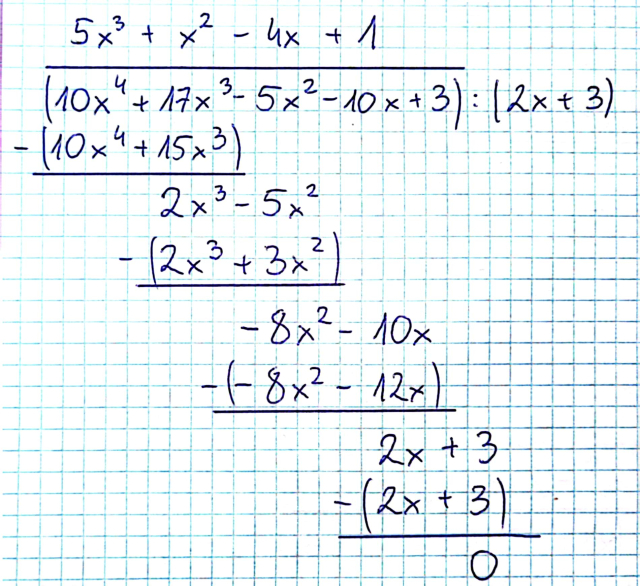 5x³ + x² - 4x + 1
(10x⁴ + 17x³ - 5x² - 10x + 3) : (2x + 3)
- (10x⁴ + 15x³)
2x³ - 5x²
- (2x³ + 3x²)
- 8x² - 10x
- (- 8x² - 12x)
2x + 3
- (2x + 3)
0